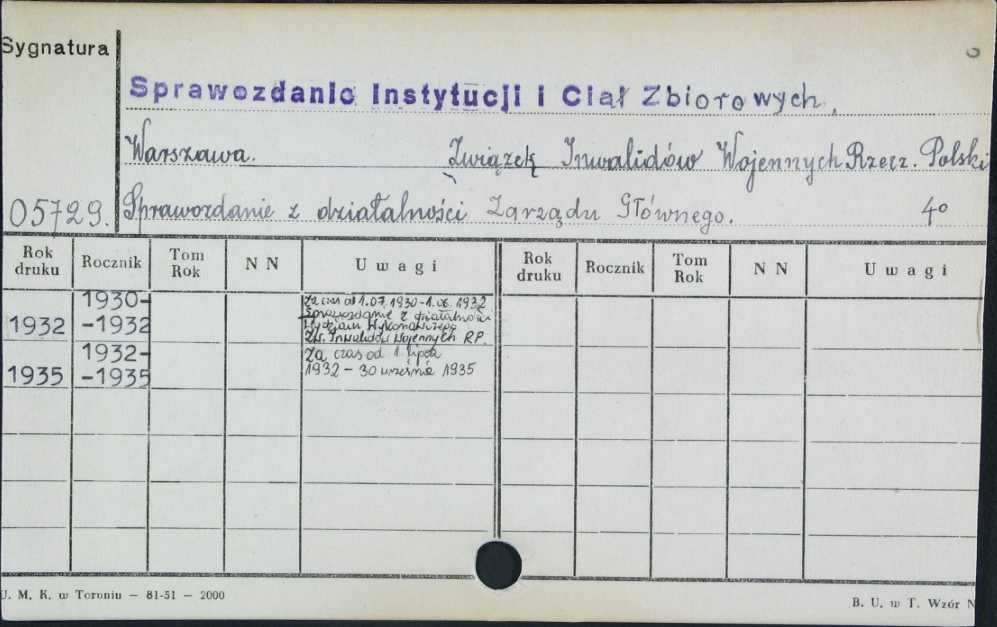 Sygnatura
Sprawozdanie Instytucji i Ciał Zbiorowych.
Warszawa. Związek Inwalidów Wojennych Rzecz. Polski
05729. Sprawozdanie z działalności Zarządu Głównego. 4o
Rok druku Rocznik Tom Rok N N Uwagi Rok druku Rocznik Tom Rok N N Uwagi
1932 1930-
-1932 Za czas od 1.07.1930-1.06.1932
Sprawozdanie z działalności
Wydziału Wykonawczego
Zw. Inwalidów Wojennych R.P.
1935 1932-
-1935 Za czas od 1. lipca
1932 - 30 września 1935
U. M. K. w Toruniu — 81-51 — 2000
B. U. w T. Wzór N